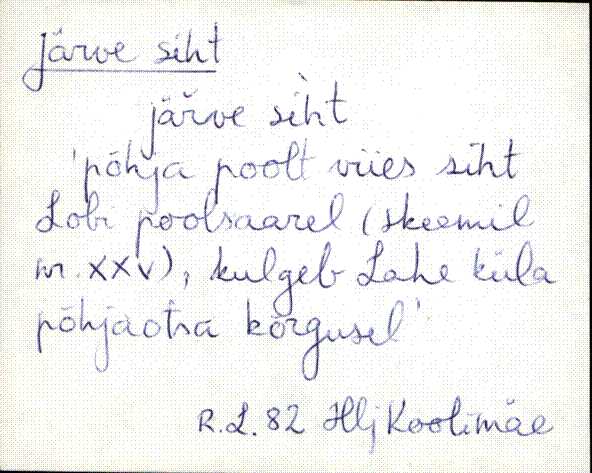 järve siht
järve sìht
'põhja poolt viies siht
Lobi poolsaarel (skeemil
nr. XXV), kulgeb Lahe küla
põhjaotsa kõrgusel'
R.L. 82 Hlj Koolimäe